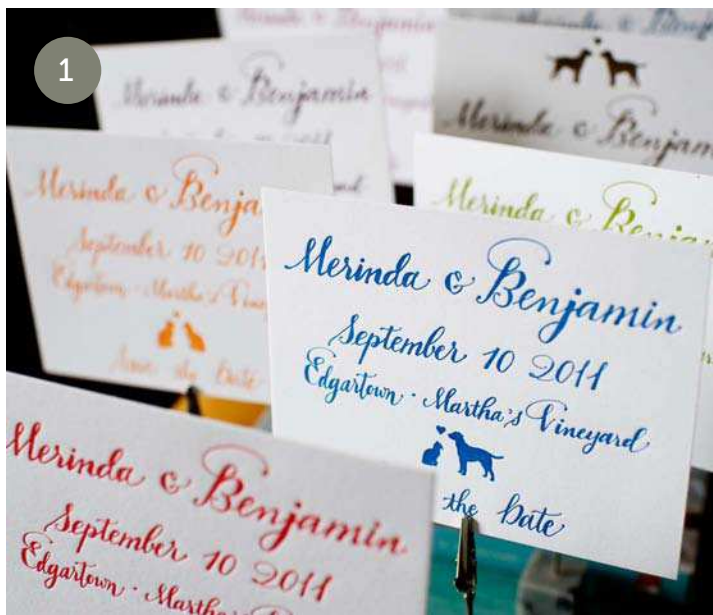 1
Merinda & Benjamin
Merinda & Benjamin
Merinda & Benja
September 10 2011
Edgartown · Martha's Vineya
Save the Date
Merinda &
Merinda & Benjamin
September 10 2011
Edgartown · Martha's Vineyard
the Date
Merinda & Benjamin
September 10 2011
Edgartown · Martha's Vineyard